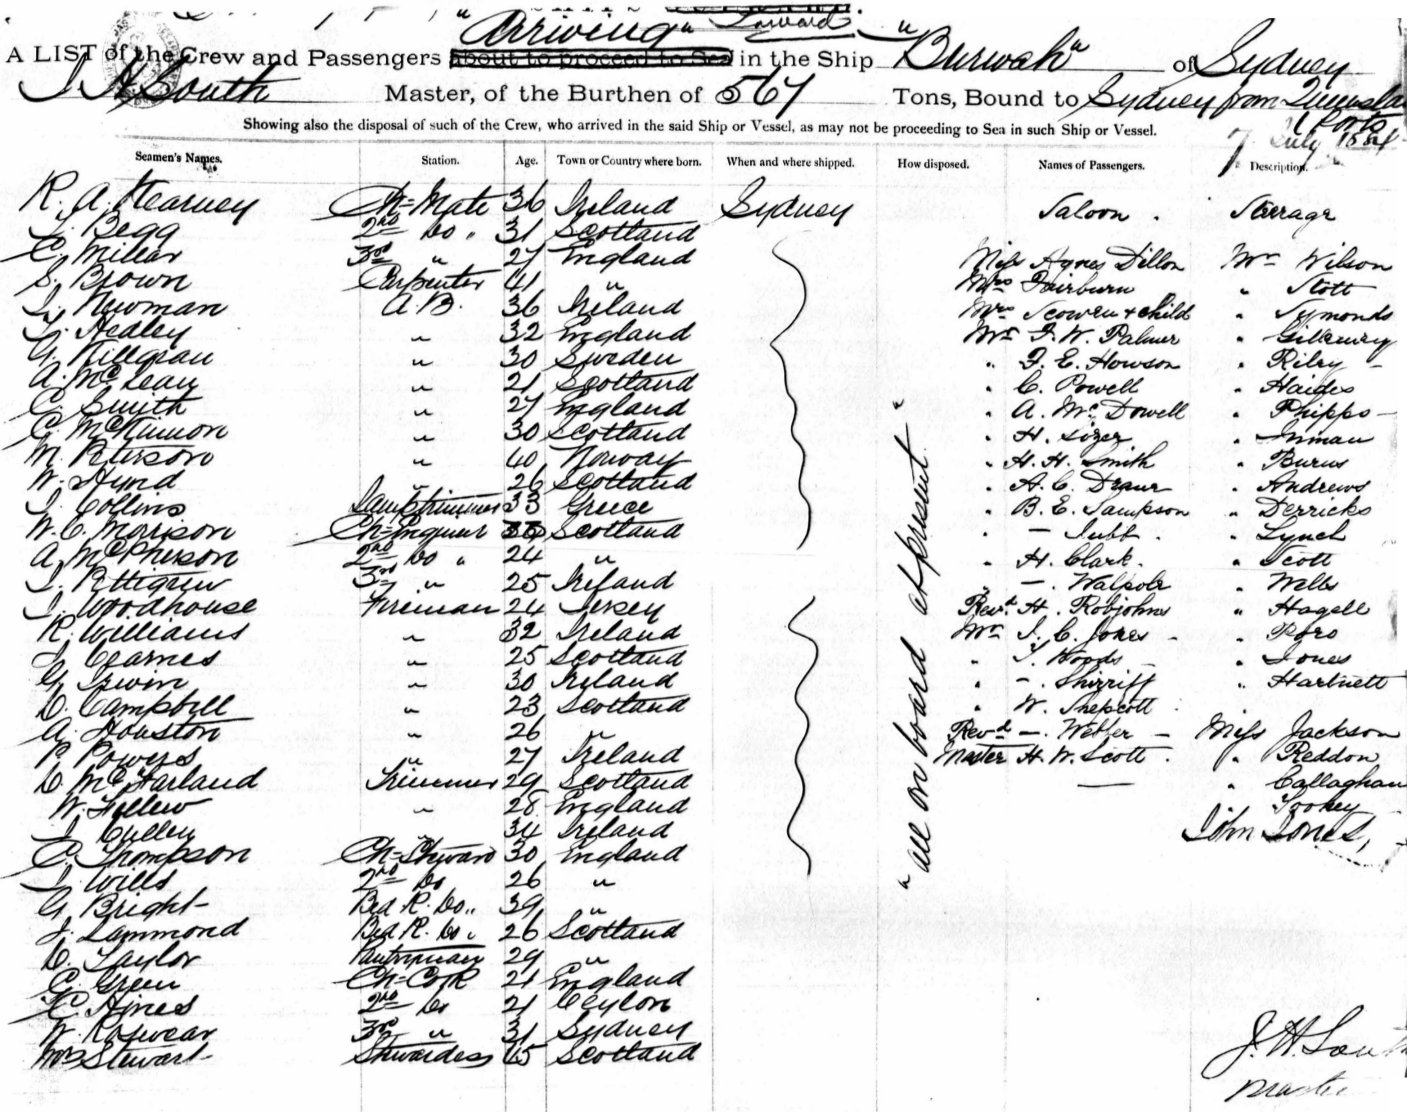 "Arriving" Inward
A LIST of the Crew and Passengers about to proceed to Sea in the Ship "Burwah" of Sydney
J H South Master, of the Burthen of 567 Tons, Bound to Sydney from Queensland
Ports
Showing also the disposal of such of the Crew, who arrived in the said Ship or Vessel, as may not be proceeding to Sea in such Ship or Vessel.
7 July 1884
Seamen's Names. Station. Age. Town or Country where born. When and where shipped. How disposed. Names of Passengers. Description.
R. A. Kearney Ch=Mate 36 Ireland Sydney Saloon. Steerage
J. Begg 2nd Do " 31 Scotland
C. Millar 3rd " 27 England Miss Agnes Dillon Mr Wilson
S. Brown Carpenter 41 " Mrs Fairburn " Stott
J. Newman A.B. 36 Ireland Mrs Scowen + child " Symonds
Hedley " 32 England Mr F. W. Palmer "
G. " 30 Sweden " F. E. Howson " Riley
A. McLean " 21 Scotland " C. Powell "
C. Smith " 27 England " A. McDowell " Phipps
C. McKinnon " 30 Scotland " H. Sizer " Inman
M. Peterson " 40 Norway " H. H. Smith " Burns
W. Hynd " 26 Scotland " A. C. " Andrews
J. Collins Lamptrimmer 33 Greece " B. E. Sampson " Derricks
W. C. Morison Ch=Engineer Scotland " — Jubb. " Lynch
A. McPherson 2nd Do " 24 " " H. Clark. " Scott
J. Pettigrew 3rd " 25 Ireland " — Walpole " Wells
J. Woodhouse Fireman 24 Jersey Revd. H. Robjohns " Hagell
R. Williams " 32 Ireland Mr J. C. Jones "
J. Cearnes " 25 Scotland " T. Woods " Jones
G. Irwin " 30 Ireland " —. Shirriff " Hartnett
D. Campbell " 23 Scotland " W. Shepcott
A. Houston " 26 " Revd. —. Webber Miss Jackson
P. Powers " 27 Ireland Master H. W. Scott. " Reddon
D. McFarland Trimmer 29 Scotland — " Callaghan
W. " 28 England " Tookey
J. Cullen " 34 Ireland John Jones,
C. Thompson Ch=Steward 30 England
J. Wills 2nd Do 26 "
G. Bright Bed R. Do " 39 "
J. Lammond Bed R. Do " 26 Scotland
D. Taylor Pantryman 29 "
C. Green Ch=Cook 21 England
C. Hines 2nd Do 21 Ceylon
W. Rosewear 3rd " 31 Sydney
Mrs Stewart Stewardess 65 Scotland
"all on board at present"
J. H. South
Master